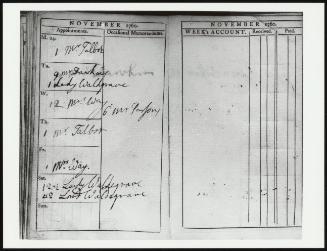 NOVEMBER 1760.
Appointments. Occasional Memorandums.
M. 24.
1 Mrs Talbot
Tu.
1 Lady Waldgrave
W.
12 Mrs Way 6 Mrs
Th.
1 Mrs Talbot
Fr.
1 Mrs Way.
Sat.
Lady Waldgrave
Lord Waldgrave
Sun.
NOVEMBER 1760.
WEEK's ACCOUNT. Received. Paid.